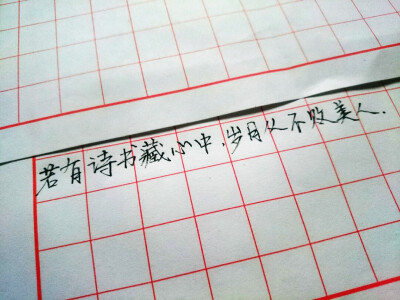 若有诗书藏心中，岁月从不败美人.